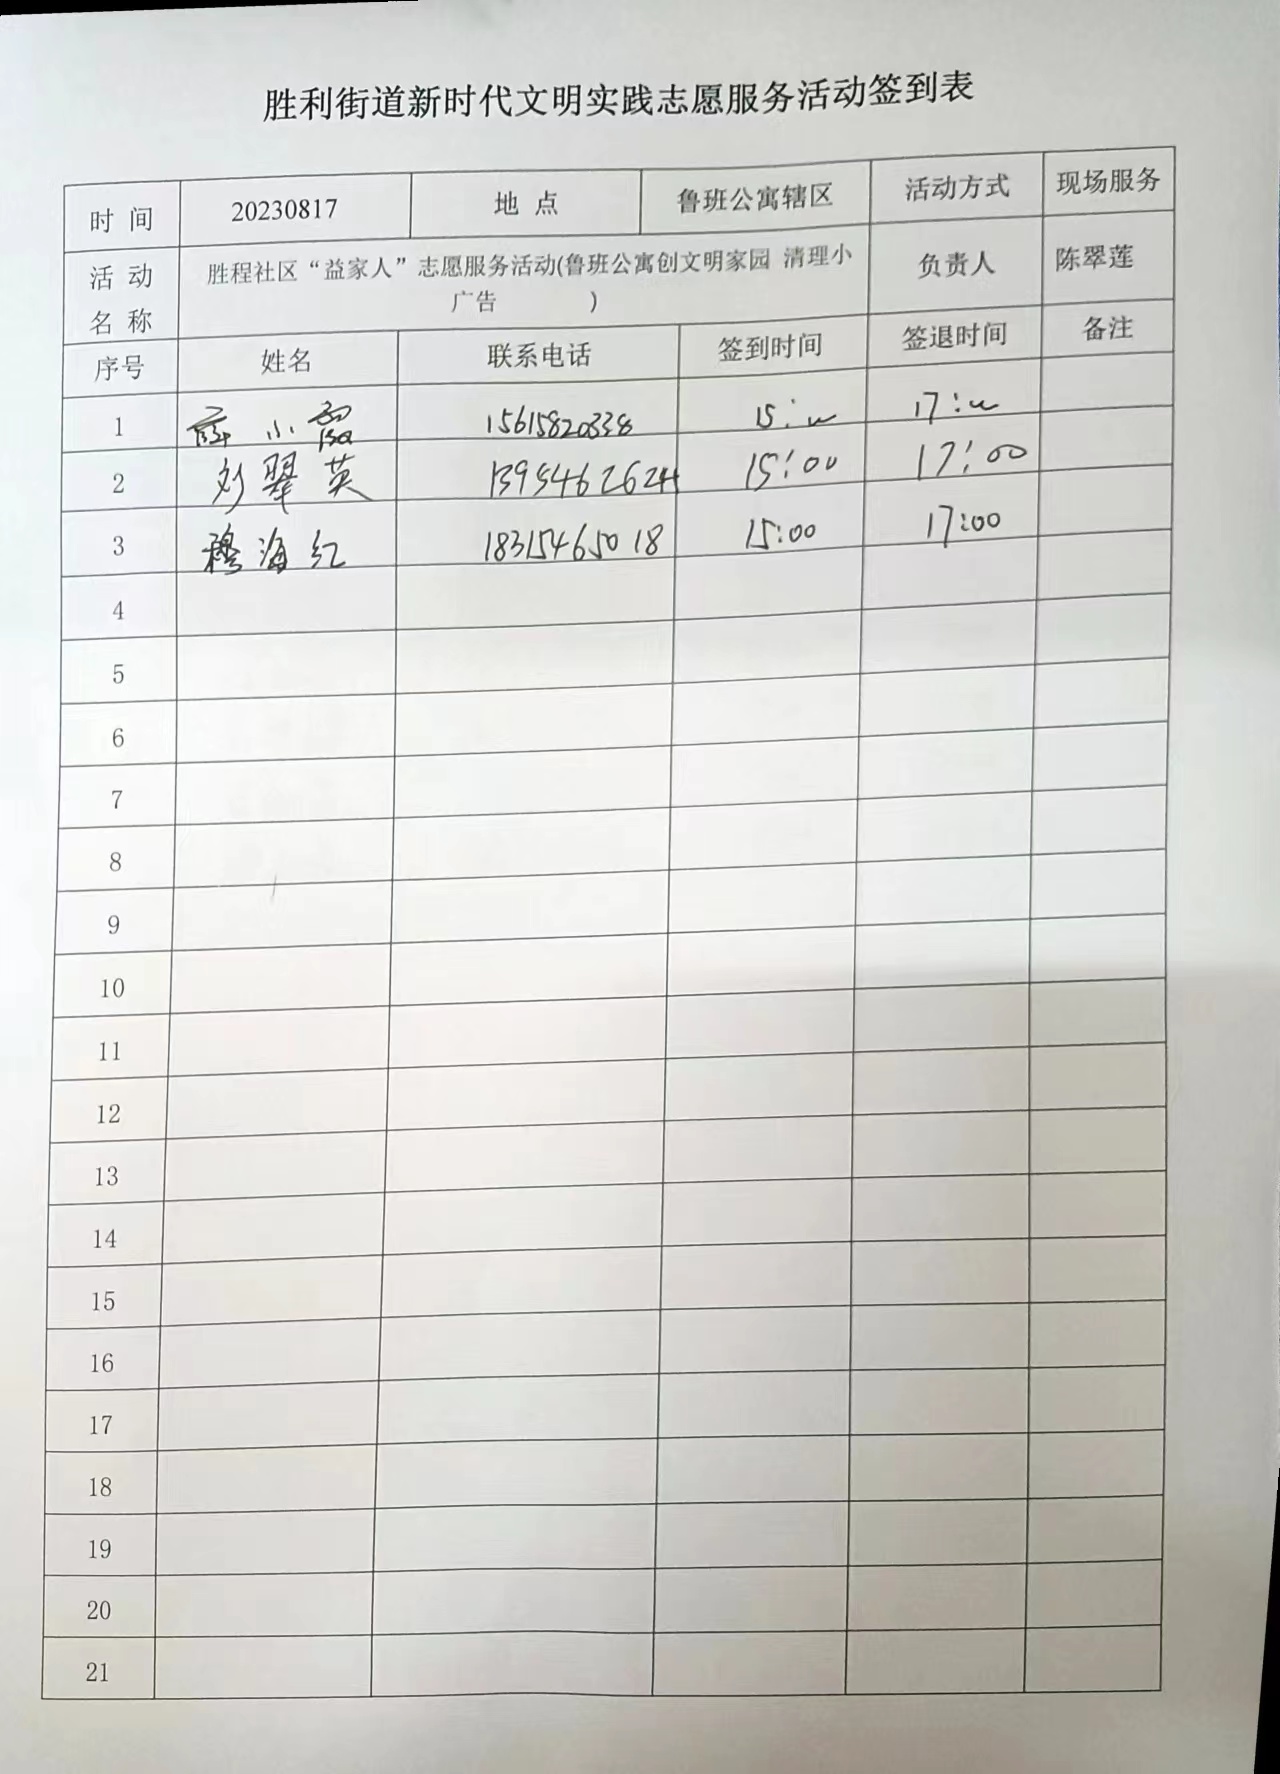 胜利街道新时代文明实践志愿服务活动签到表
时 间 20230817 地 点 鲁班公寓辖区 活动方式 现场服务
活 动 名 称 胜程社区“益家人”志愿服务活动(鲁班公寓创文明家园 清理小 负责人 陈翠莲
广告 )
序号 姓名 联系电话 签到时间 签退时间 备注
1 薛小霞 15615820338 15:00 17:00
2 刘翠英 15:00 17:00
3 穆海红 18315465018 15:00 17:00
4
5
6
7
8
9
10
11
12
13
14
15
16
17
18
19
20
21